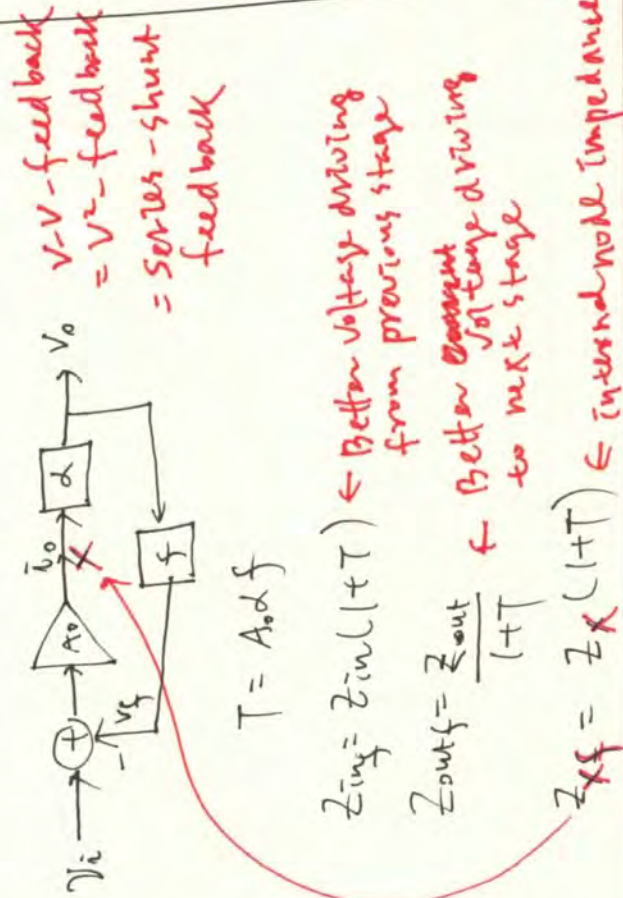 V-V-feedback
= V²-feedback
= Series-shunt
feedback
Vi + A₀ i₀ α V₀
- Vf X
f
T = A₀αf
Zinf = Zin(1+T) ← Better voltage driving
from previous stage
Zoutf = Zout / 1+T ← Better voltage driving
to next stage
Zxf = Zx(1+T) ← internal node impedance